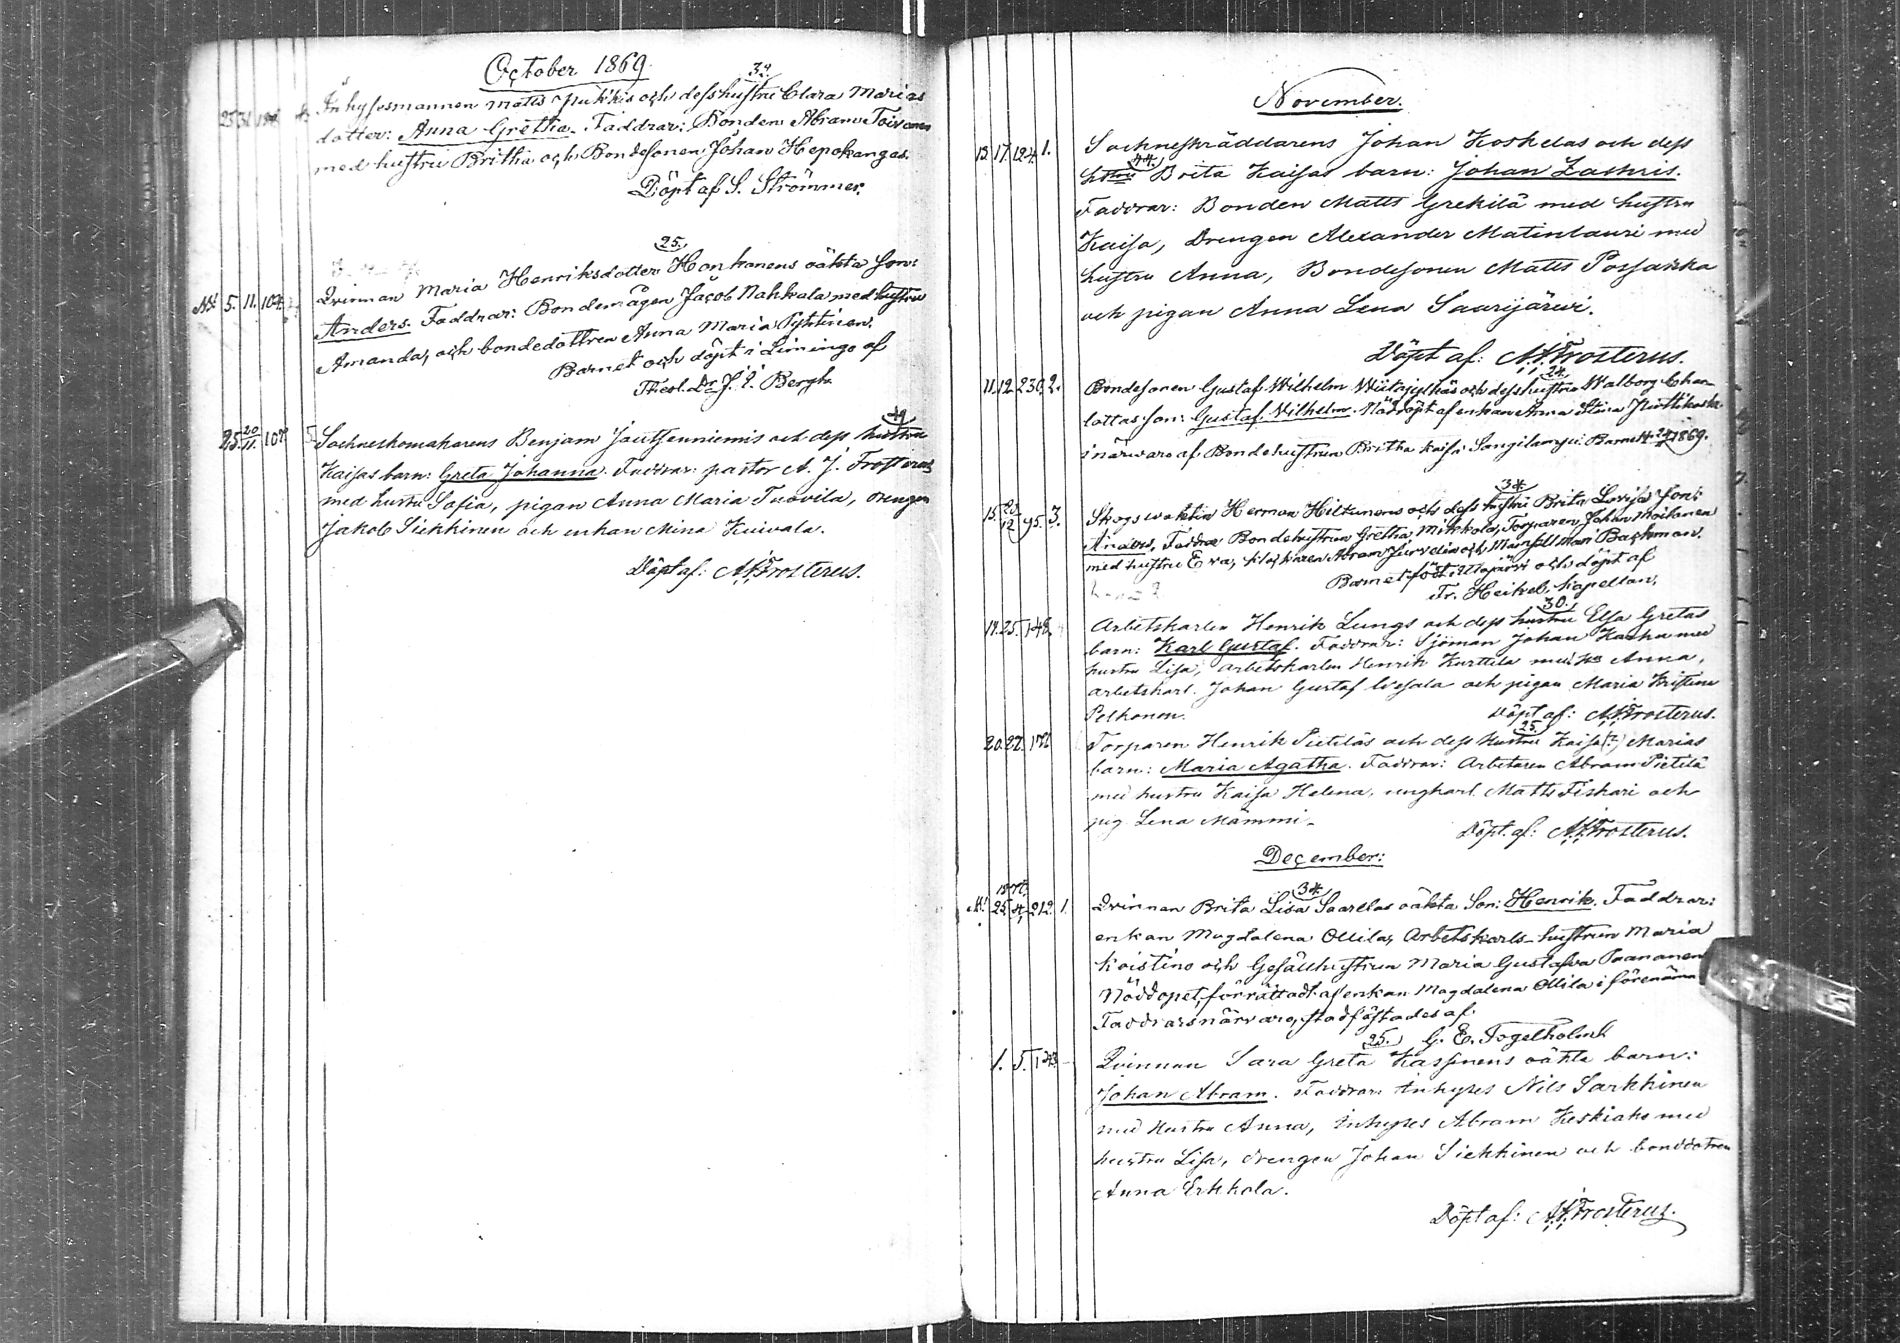 October 1869.
32.
25 31 Inhysesmannen Matts Pukkis och dess hustru Clara Marias
dotter: Anna Gretha. Faddrar: Bonden Abram Toivonen
med hustru Britha och Bondesonen Johan Hepokangas.
Döpt af S. Strömmer.
25.
5. 11. 104. Qvinnan Maria Henriksdotter Honkanens oäkta son:
Anders. Faddrar: Bondemågen Jacob Nahkala med hustru
Amanda, och bondedottren Anna Maria Tyhtinen.
Barnet och döpt i Limingo af
Theol. Dr J. I. Bergh.
25 20/11 107. 5 Sockneskomakarens Benjam Jautsenniemis och dess hustru
Kaisas barn: Greta Johanna. Faddrar: pastor A. J. Frosterus
med hustru Sofia, pigan Anna Maria Tuovila, drengen
Jakob Siekkinen och enkan Mina Kuivala.
Döpt af: A.J. Frosterus.
November.
13. 17. 124. 1. Sockneskräddarens Johan Koskelas och dess
44.
hstru Brita Kaisas barn: Johan Zachris.
Faddrar: Bonden Matts Grekilä med hustru
Kaisa, Drengen Alexander Matinlauri med
hustru Anna, Bondesonen Matts
och pigan Anna Lena Saarijärvi.
Döpt af: A.J. Frosterus.
24.
11. 12. 230. 2. Bondesonen Gustaf Wilhelm och dess hustru Walborg Char-
lottas son: Gustaf Vilhelm. Nöddöpt af enkan Anna Stina
i närvaro af Bondehustrun Britha Kaisa Sangilampi. Barnet † 24/11 1869.
34.
15. 95. 3. Skogswaktin Herman Hiltunens och dess hustru Brita Lovisa son:
Anders, Faddrar Bondehustrun Gretha Mikkola, Torparen Johan Moilanen
med hustru Eva, klockaren Abram och Mamsell Mari Bachman.
Barnet född i Utajärvi och döpt af
Fr. Heikel, Kapellan.
30.
19. 25. 148. Arbetskarlen Henrik Lungs och dess hustru Elsa Gretas
barn: Karl Gustaf. Faddrar: Sjöman Johan Karha med
hustru Lisa, arbetskarlen Henrik Kurttila med Anna,
arbetskarl. Johan Gustaf Wesala och pigan Maria Kristina
Pelkonen. Döpt af: A.J. Frosterus.
25.
20. 27. 172 Torparen Henrik Pietiläs och dess hustru Kaisa (?) Marias
barn: Maria Agatha. Faddrar: Arbetaren Abram Pietilä
med hustru Kaisa Helena, ungkarl Matts Fiskari och
pig. Lena Mämmi.
Döpt af: A.J. Frosterus.
December:
34.
25 212. 1. Qvinnan Brita Lisa Saarelas oäkta Son: Henrik. Faddrar:
enkan Magdalena Ollila, Arbetskarls-hustrun Maria
Koistino och Gesällhustrun Maria Gustafva Paananen
Nöddopet, förrättadt af enkan Magdalena Ollila i förenämn
Faddrars närvaro, stadfästades af
G. E. Fogelholm
25.
1. 5. 123 Qvinnan Sara Greta Kassinens oäkta barn:
Johan Abram. Faddrar: Inhyses Nils Sarkkinen
med hustru Anna, Inhyses Abram Keskiaho med
hustru Lisa, drengen Johan Siekkinen och bonddotren
Anna Erkkola.
Döpt af: A.J. Frosterus.